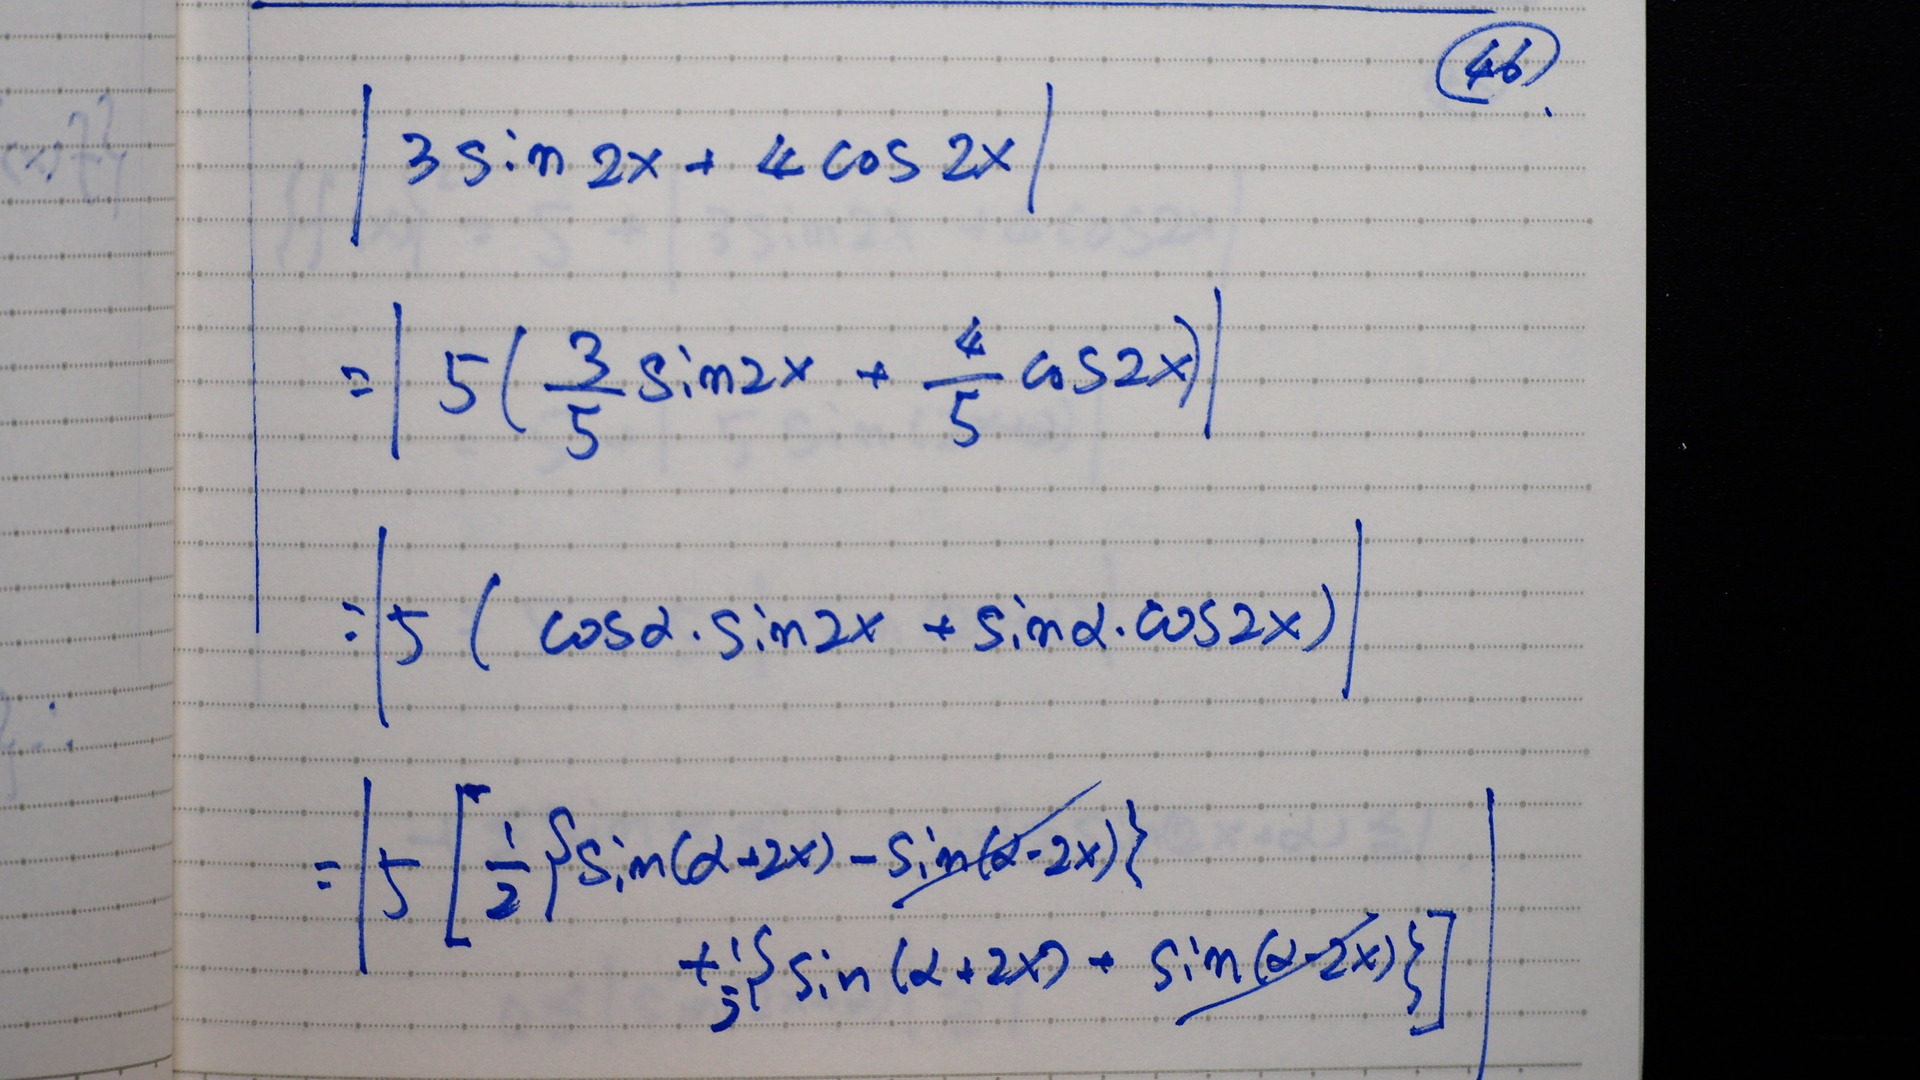 46
|3 sin 2x + 4 cos 2x|
= |5(3/5 sin 2x + 4/5 cos 2x)|
= |5 (cos α · sin 2x + sin α · cos 2x)|
= |5 [1/2 {sin(α+2x) - sin(α-2x)}
+ 1/2 {sin (α+2x) + sin(α-2x)}]|